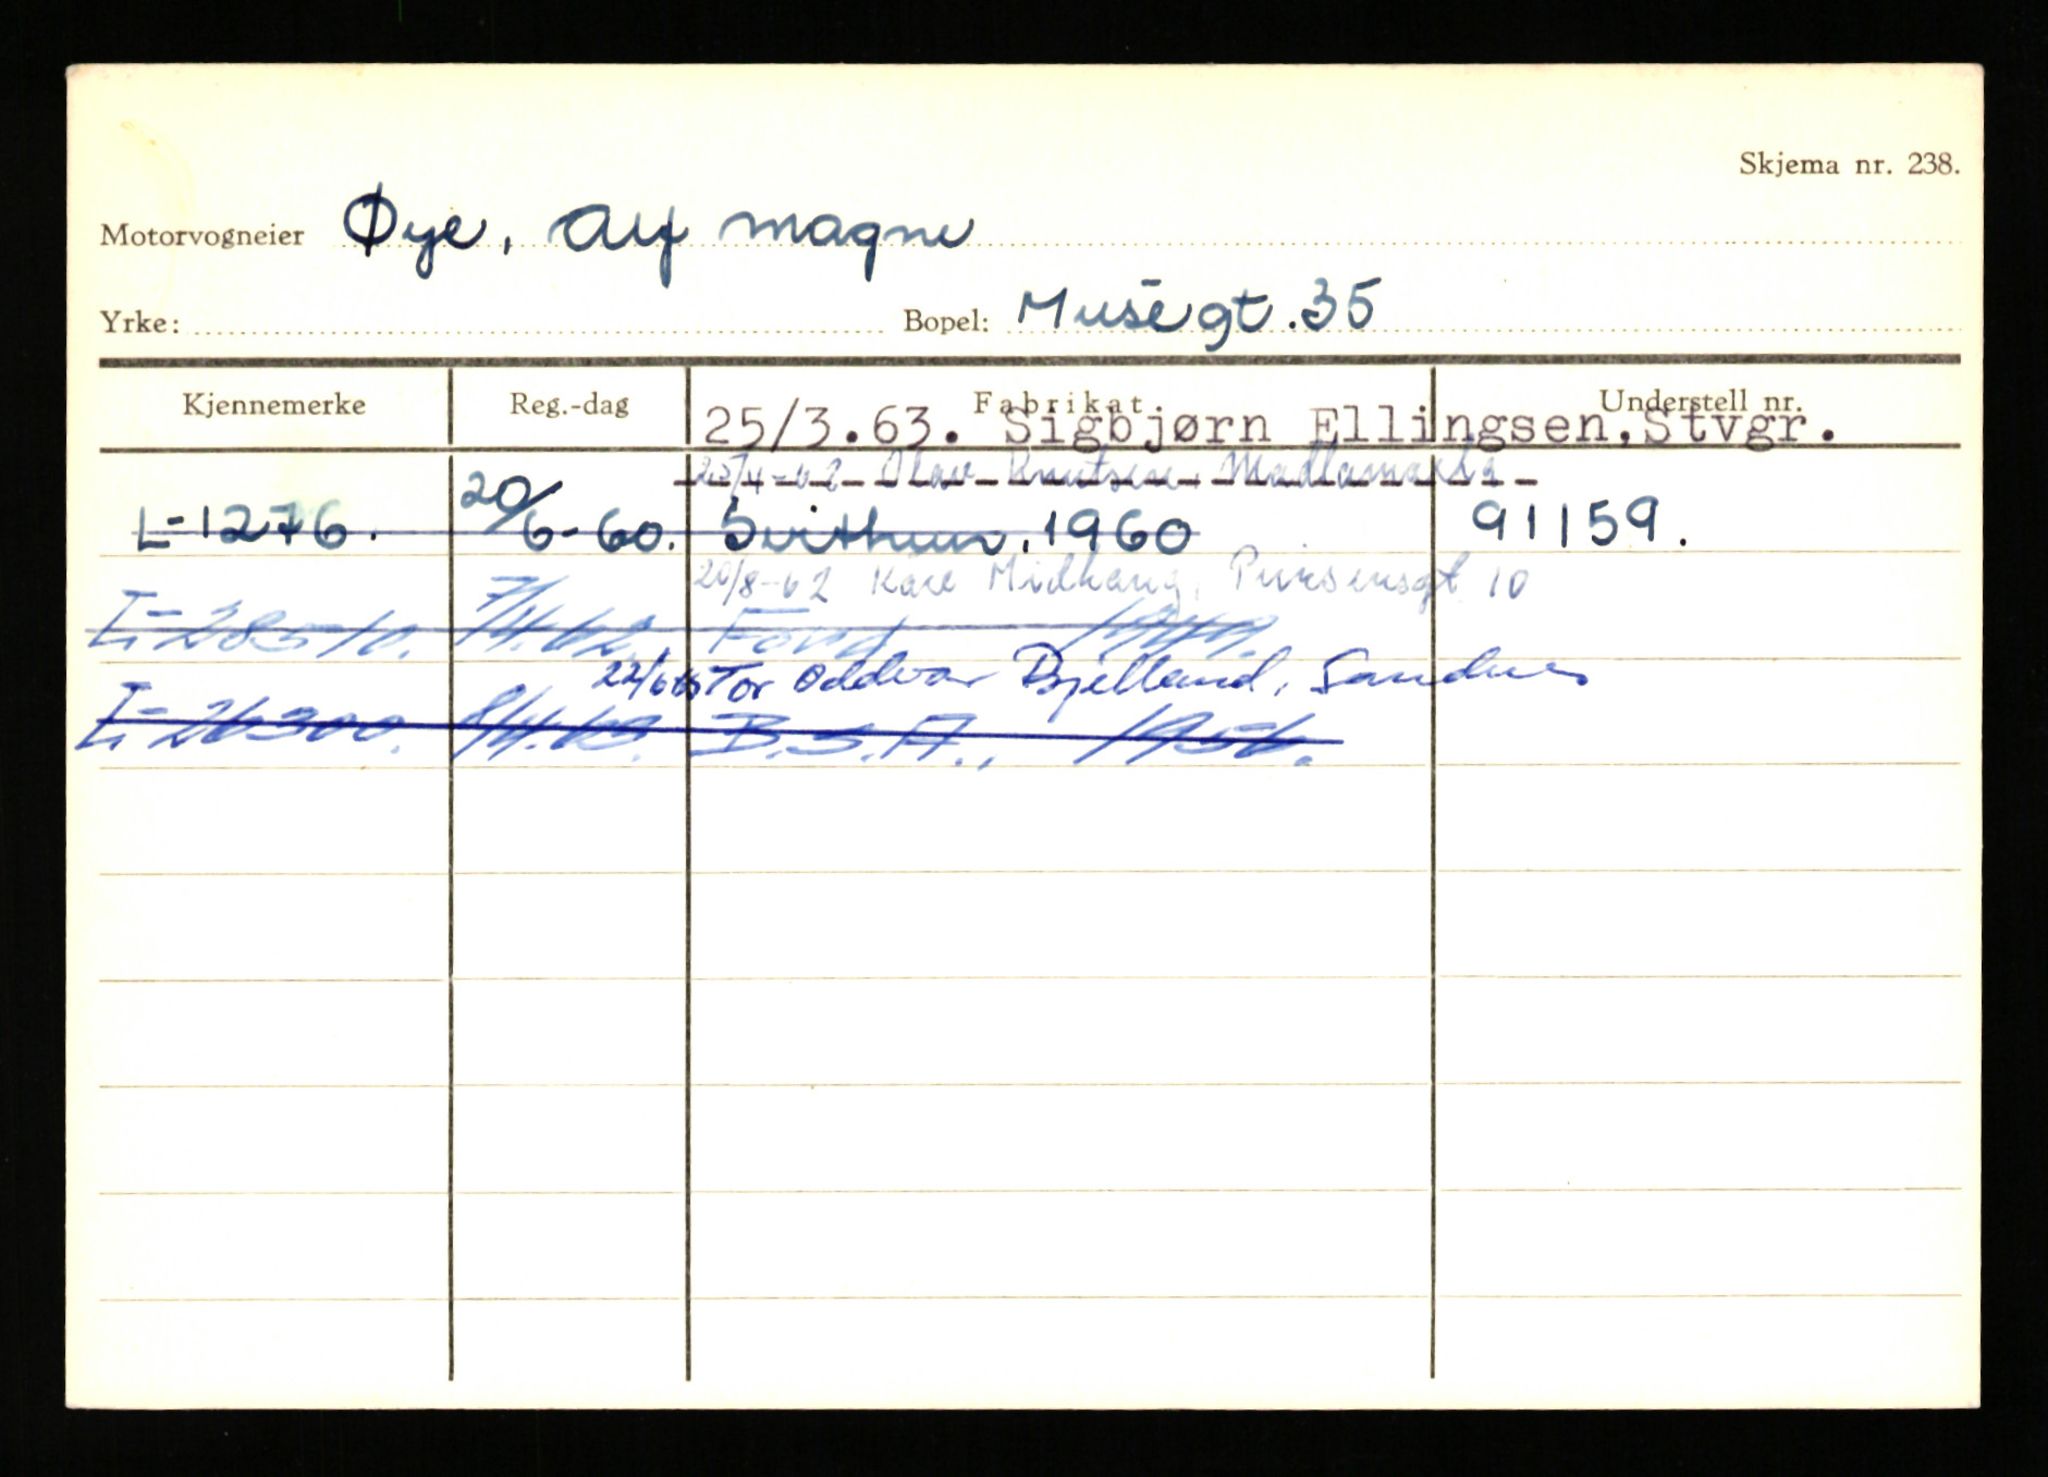 Skjema nr. 238.
Motorvogneier Øye, Alf Magne
Yrke: Bopel: Muségt. 35
Kjennemerke Reg.-dag Fabrikat. Understell nr.
25/3.63. Sigbjørn Ellingsen,Stvgr.
25/4-62 Olav Knutsen, Madlamarka
L-1276. 20/6-60. Svithun, 1960 91159.
20/8-62 Kåre Midhaug, 10
L-28510. 7/4.62. Ford
22/6 63 Tor Oddvar Bjelland, Sandnes
L-26300. 8/4.63. B.S.A., 1956.